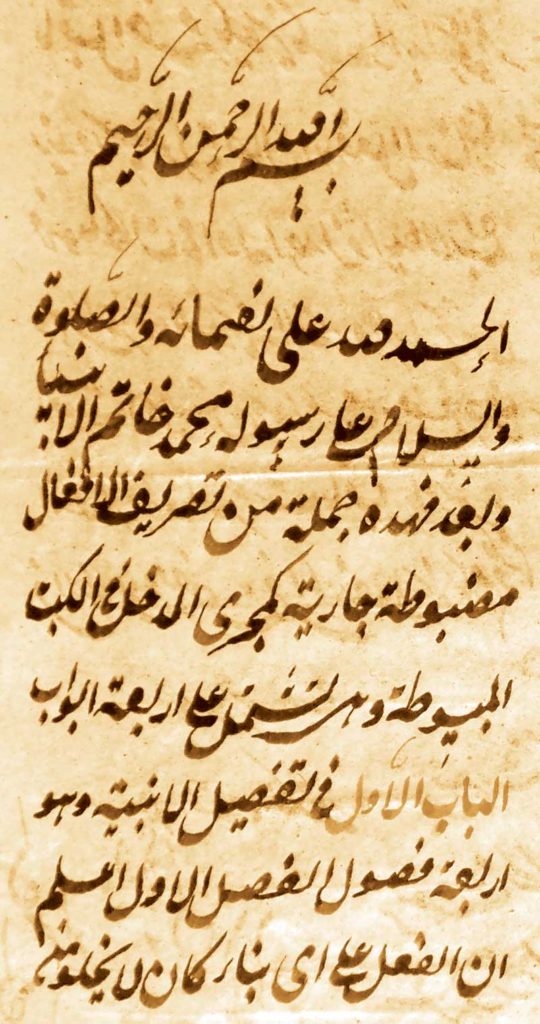 بسم الله الرحمن الرحيم
الحمد لله على نعمائه والصلوة
والسلام على رسوله محمد خاتم الانبيا
وبعد فهذه جملة من تصريف الافعال
مضبوطة جارية كمجرى المدخل في الكتب
المبسوطة وهى تشتمل على اربعة ابواب
الباب الاول في تفصيل الابنية وهو
اربعة فصول الفصل الاول اعلم
ان الفعل على اى بناء كان لا يخلو من